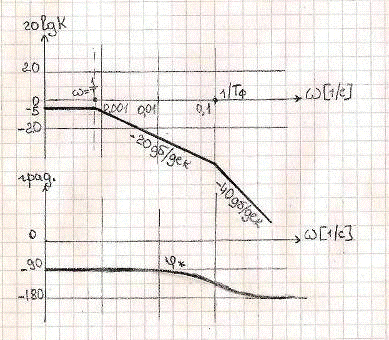 20lgK
20
0
-5
-20
ω=1/T
0,001
0,01
0,1
1/Tф
ω[1/c]
-20дб/дек
-40дб/дек
град.
0
-90
-180
φ*
ω[1/c]